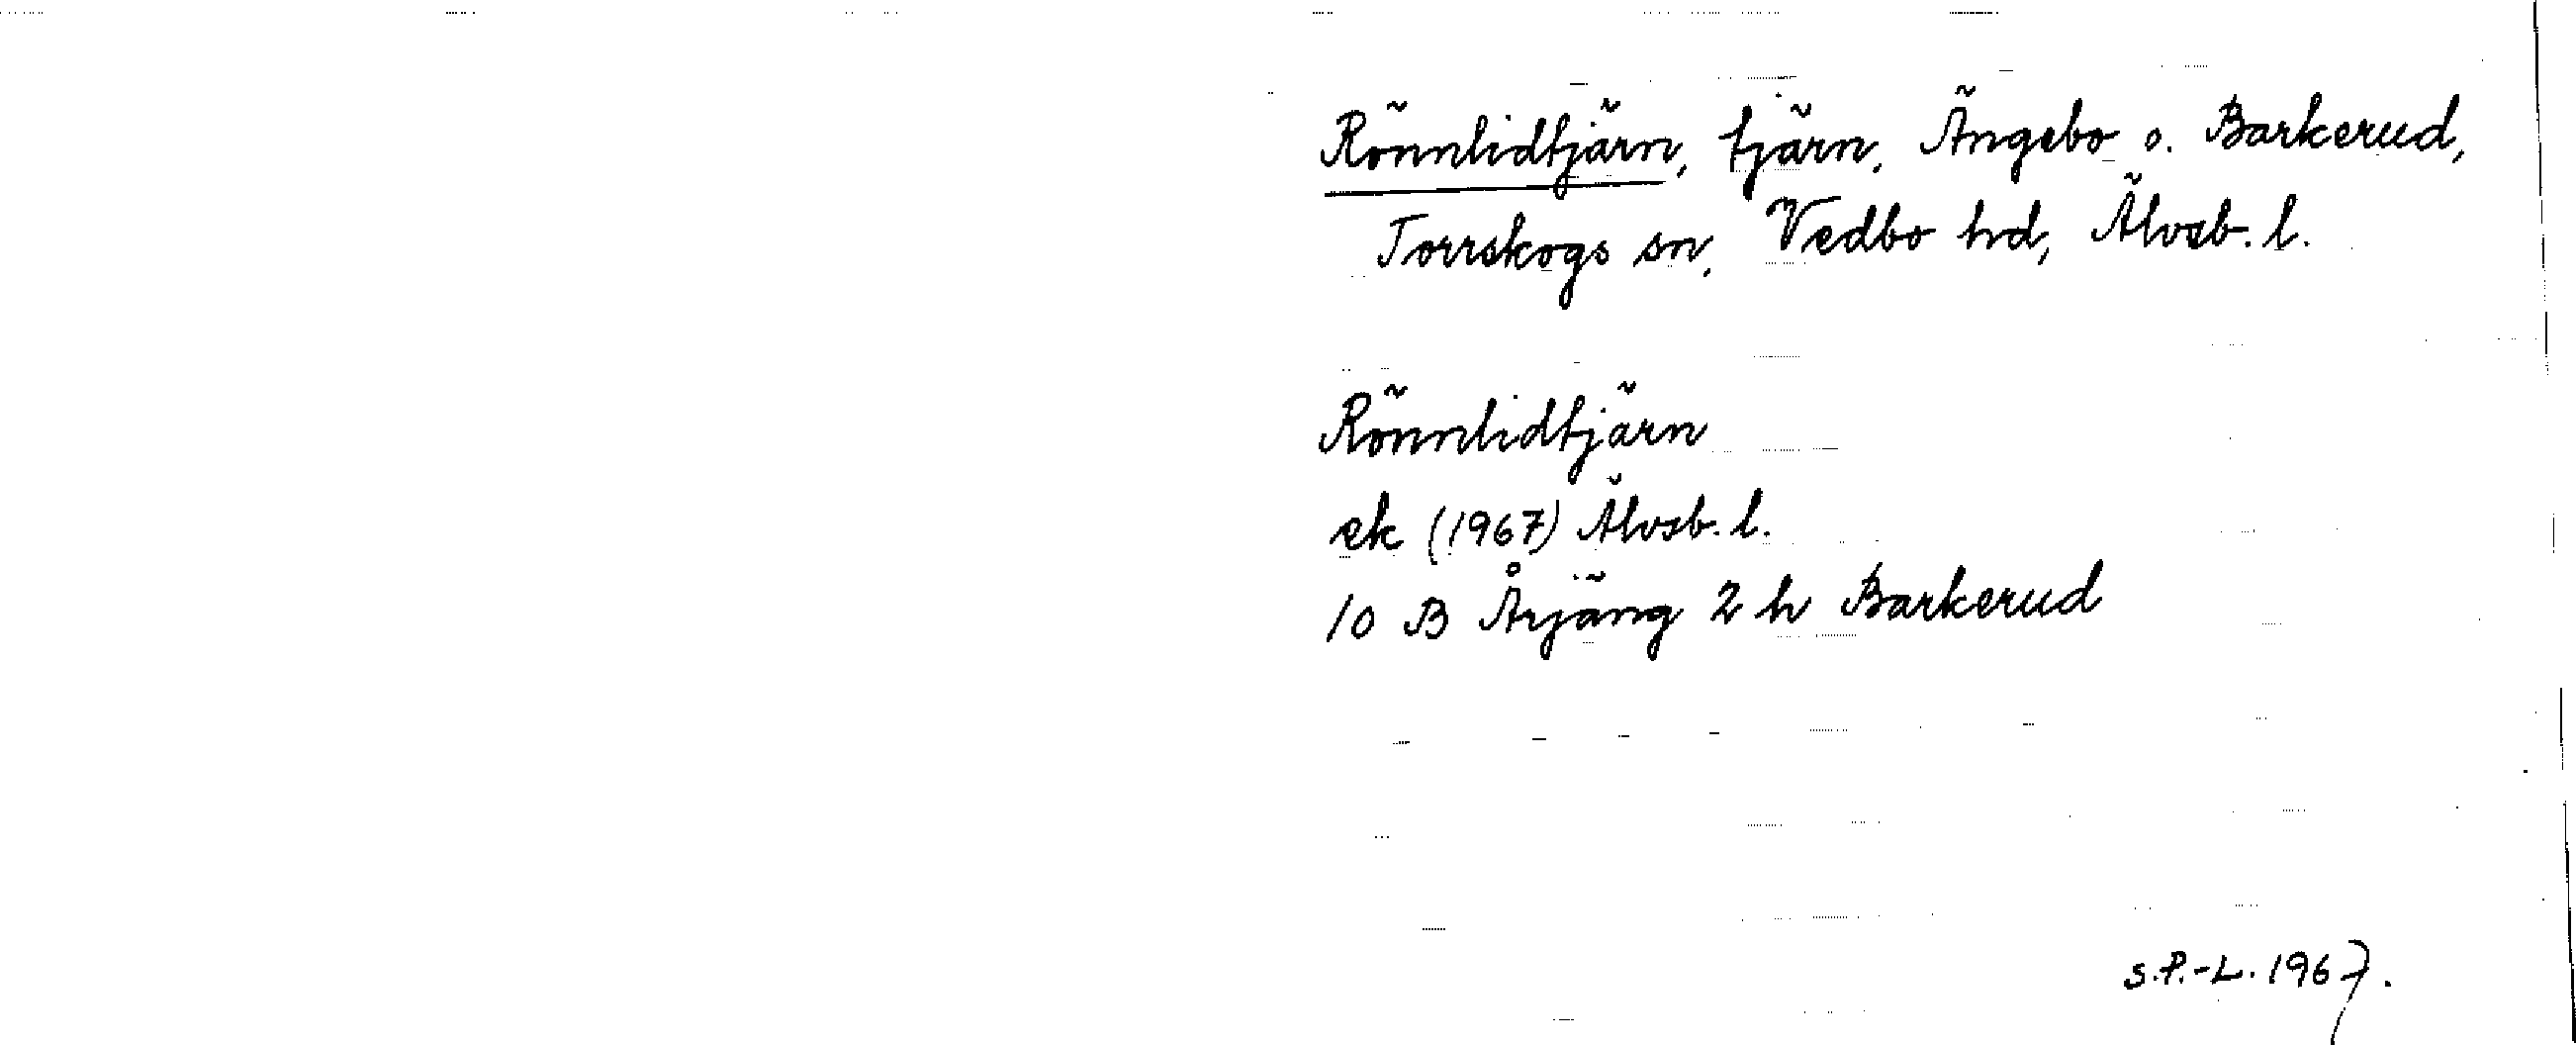 Rönnlidtjärn, tjärn, Ängebo o. Barkerud,
Torrskogs sn, Vedbo hd, Älvsb. l.
Rönnlidtjärn
ek (1967) Älvsb. l.
10 B Årjäng 2 h Barkerud
S.P.-L. 1967.